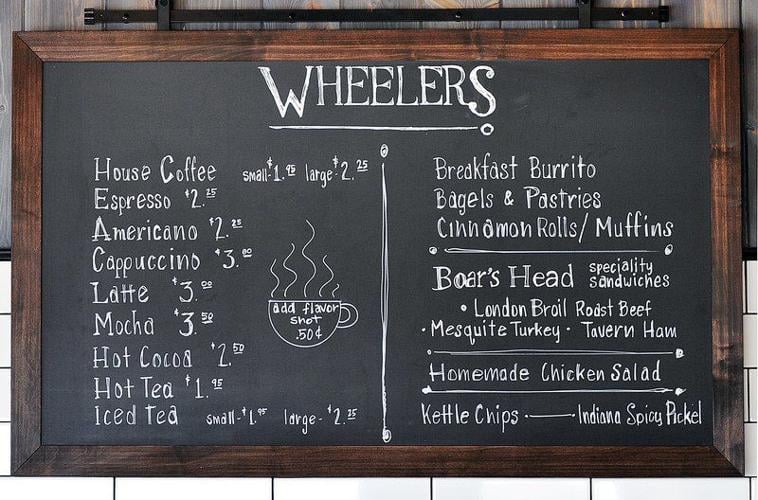 WHEELERS
House Coffee small-$1.95 large-$2.25
Espresso $2.25
Americano $2.25
Cappuccino $3.00
Latte $3.00
Mocha $3.50
Hot Cocoa $2.50
Hot Tea $1.95
Iced Tea small-$1.95 large-$2.25
add flavor
shot
.50¢
Breakfast Burrito
Bagels & Pastries
Cinnamon Rolls/Muffins
Boar's Head speciality
sandwiches
• London Broil Roast Beef
• Mesquite Turkey • Tavern Ham
Homemade Chicken Salad
Kettle Chips — Indiana Spicy Pickel